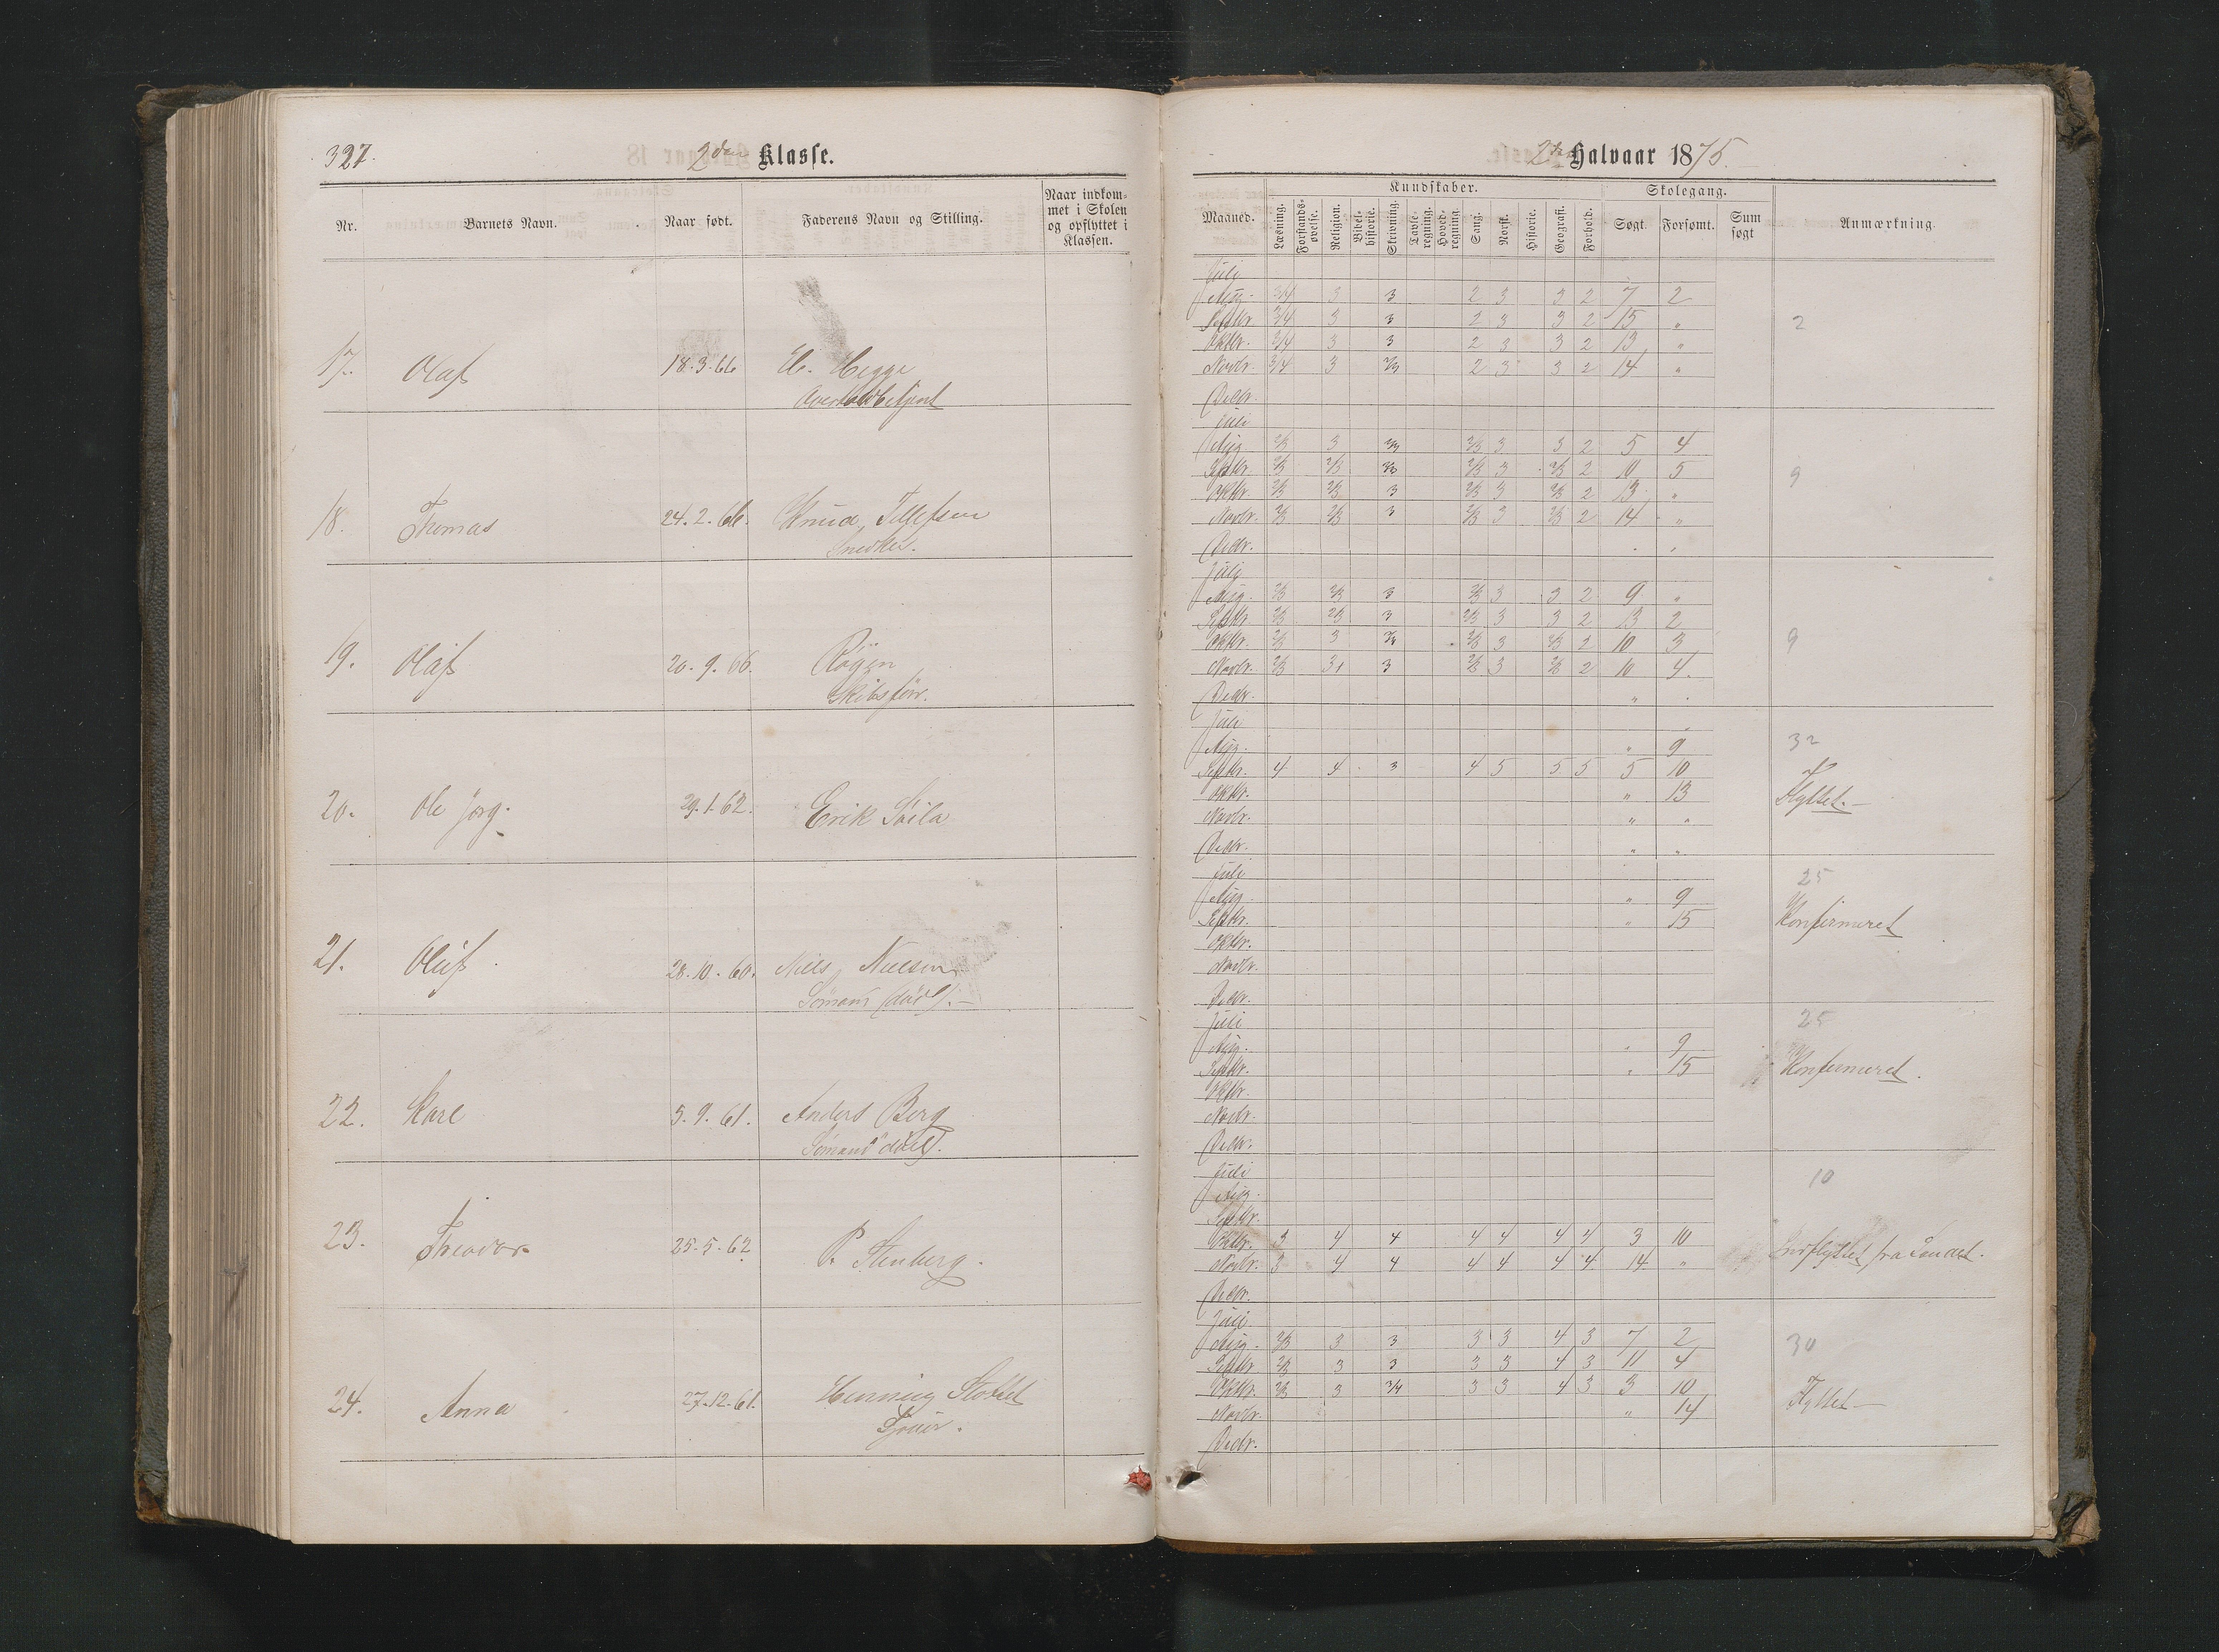 327.
2den Klasse.
Nr.
Barnets Navn.
Naar født.
Faderens Navn og Stilling.
Naar indkom-
met i Skolen
og opflyttet i
Klassen.
17. Olaf 18.3.66 Hegge
18. Thomas 24.2.66. Knud Tellefsen
Snedker.
19. Olaf 20.9.66.
Skibsfør.
20. Ole Jørg. 29.1.62. Erik
21. Oluf 28.10.60. Niels Nielsen
Sømand (død).
22. Karl 5.9.61. Anders Berg
Sømand død).
23. Theodor 25.5.62 P. Stenberg.
24. Anna 27.12.61. Henning
2det Halvaar 1875.
Maaned.
Kundskaber.
Læsning.
Forstands-
øvelse.
Religion.
Bibel-
historie.
Skrivning.
Tavle-
regning.
Hoved-
regning.
Sang.
Norsk.
Historie.
Geografi.
Forhold.
Skolegang.
Søgt.
Forsømt.
Sum
søgt
Anmærkning
Juli
Aug. 3/4 3 3 2 3 3 2 7 2
Septbr. 3/4 3 3 2 3 3 2 15 " 2
Oktbr. 3/4 3 3 2 3 3 2 13 "
Novbr. 3/4 3 2/3 2 3 3 2 14 "
Decbr.
Juli
Aug. 2/3 3 2/3 2/3 3 3 2 5 4
Septbr. 2/3 2/3 2/3 2/3 3 2/3 2 10 5 9
Oktbr. 2/3 2/3 3 2/3 3 2/3 2 13 "
Novbr. 2/3 2/3 3 2/3 3 2/3 2 14 "
Decbr.
Juli
Aug. 2/3 2/3 3 2/3 3 3 2 9 "
Septbr. 2/3 2/3 3 2/3 3 3 2 13 2
Oktbr. 2/3 3 2/3 3 2/3 2 10 3 9
Novbr. 2/3 3 3 2/3 3 2/3 2 10 4.
Decbr. "
Juli
Aug. " 9 32
Septbr. 4 4 3 4 5 5 5 5 10
Oktbr. " 13 Flyttet.
Novbr. " "
Decbr. " "
Juli 25
Aug. " 9
Septbr. " 15 Konfirmeret
Oktbr.
Novbr.
Decbr.
Juli 25
Aug. " 9
Septbr. " 15 Konfirmeret.
Oktbr.
Novbr.
Decbr.
Juli 10
Aug.
Septbr.
Oktbr. 3 4 4 4 4 4 4 3 10 Indflyttet fra Landet.
Novbr. 3 4 4 4 4 4 4 14 "
Decbr.
Juli
Aug. 2/3 3 3 3 3 4 3 7 2 30
Septbr. 2/3 3 3 3 3 4 3 11 4
Oktbr. 2/3 3 3/4 3 3 4 3 3 10 Flyttet
Novbr. " 14
Decbr.